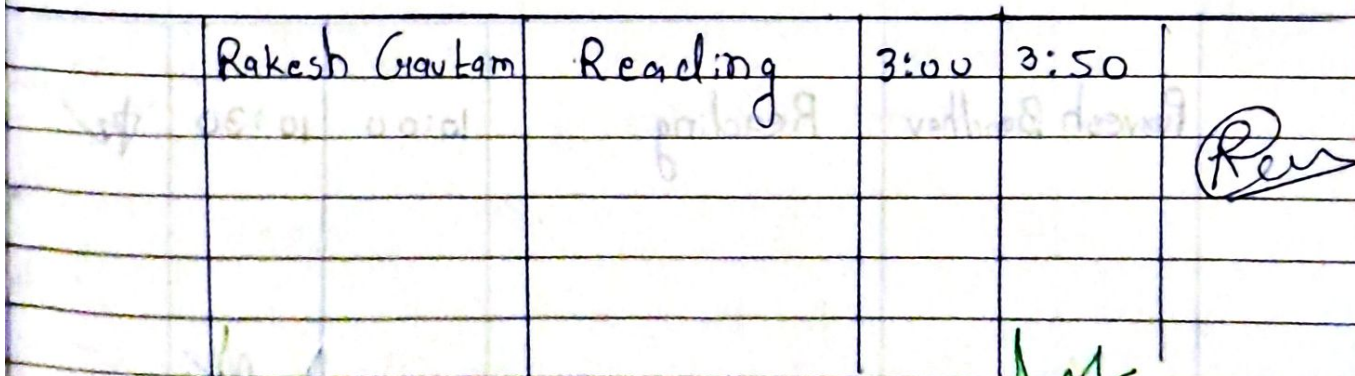 Rakesh Gautam Reading 3:00 3:50